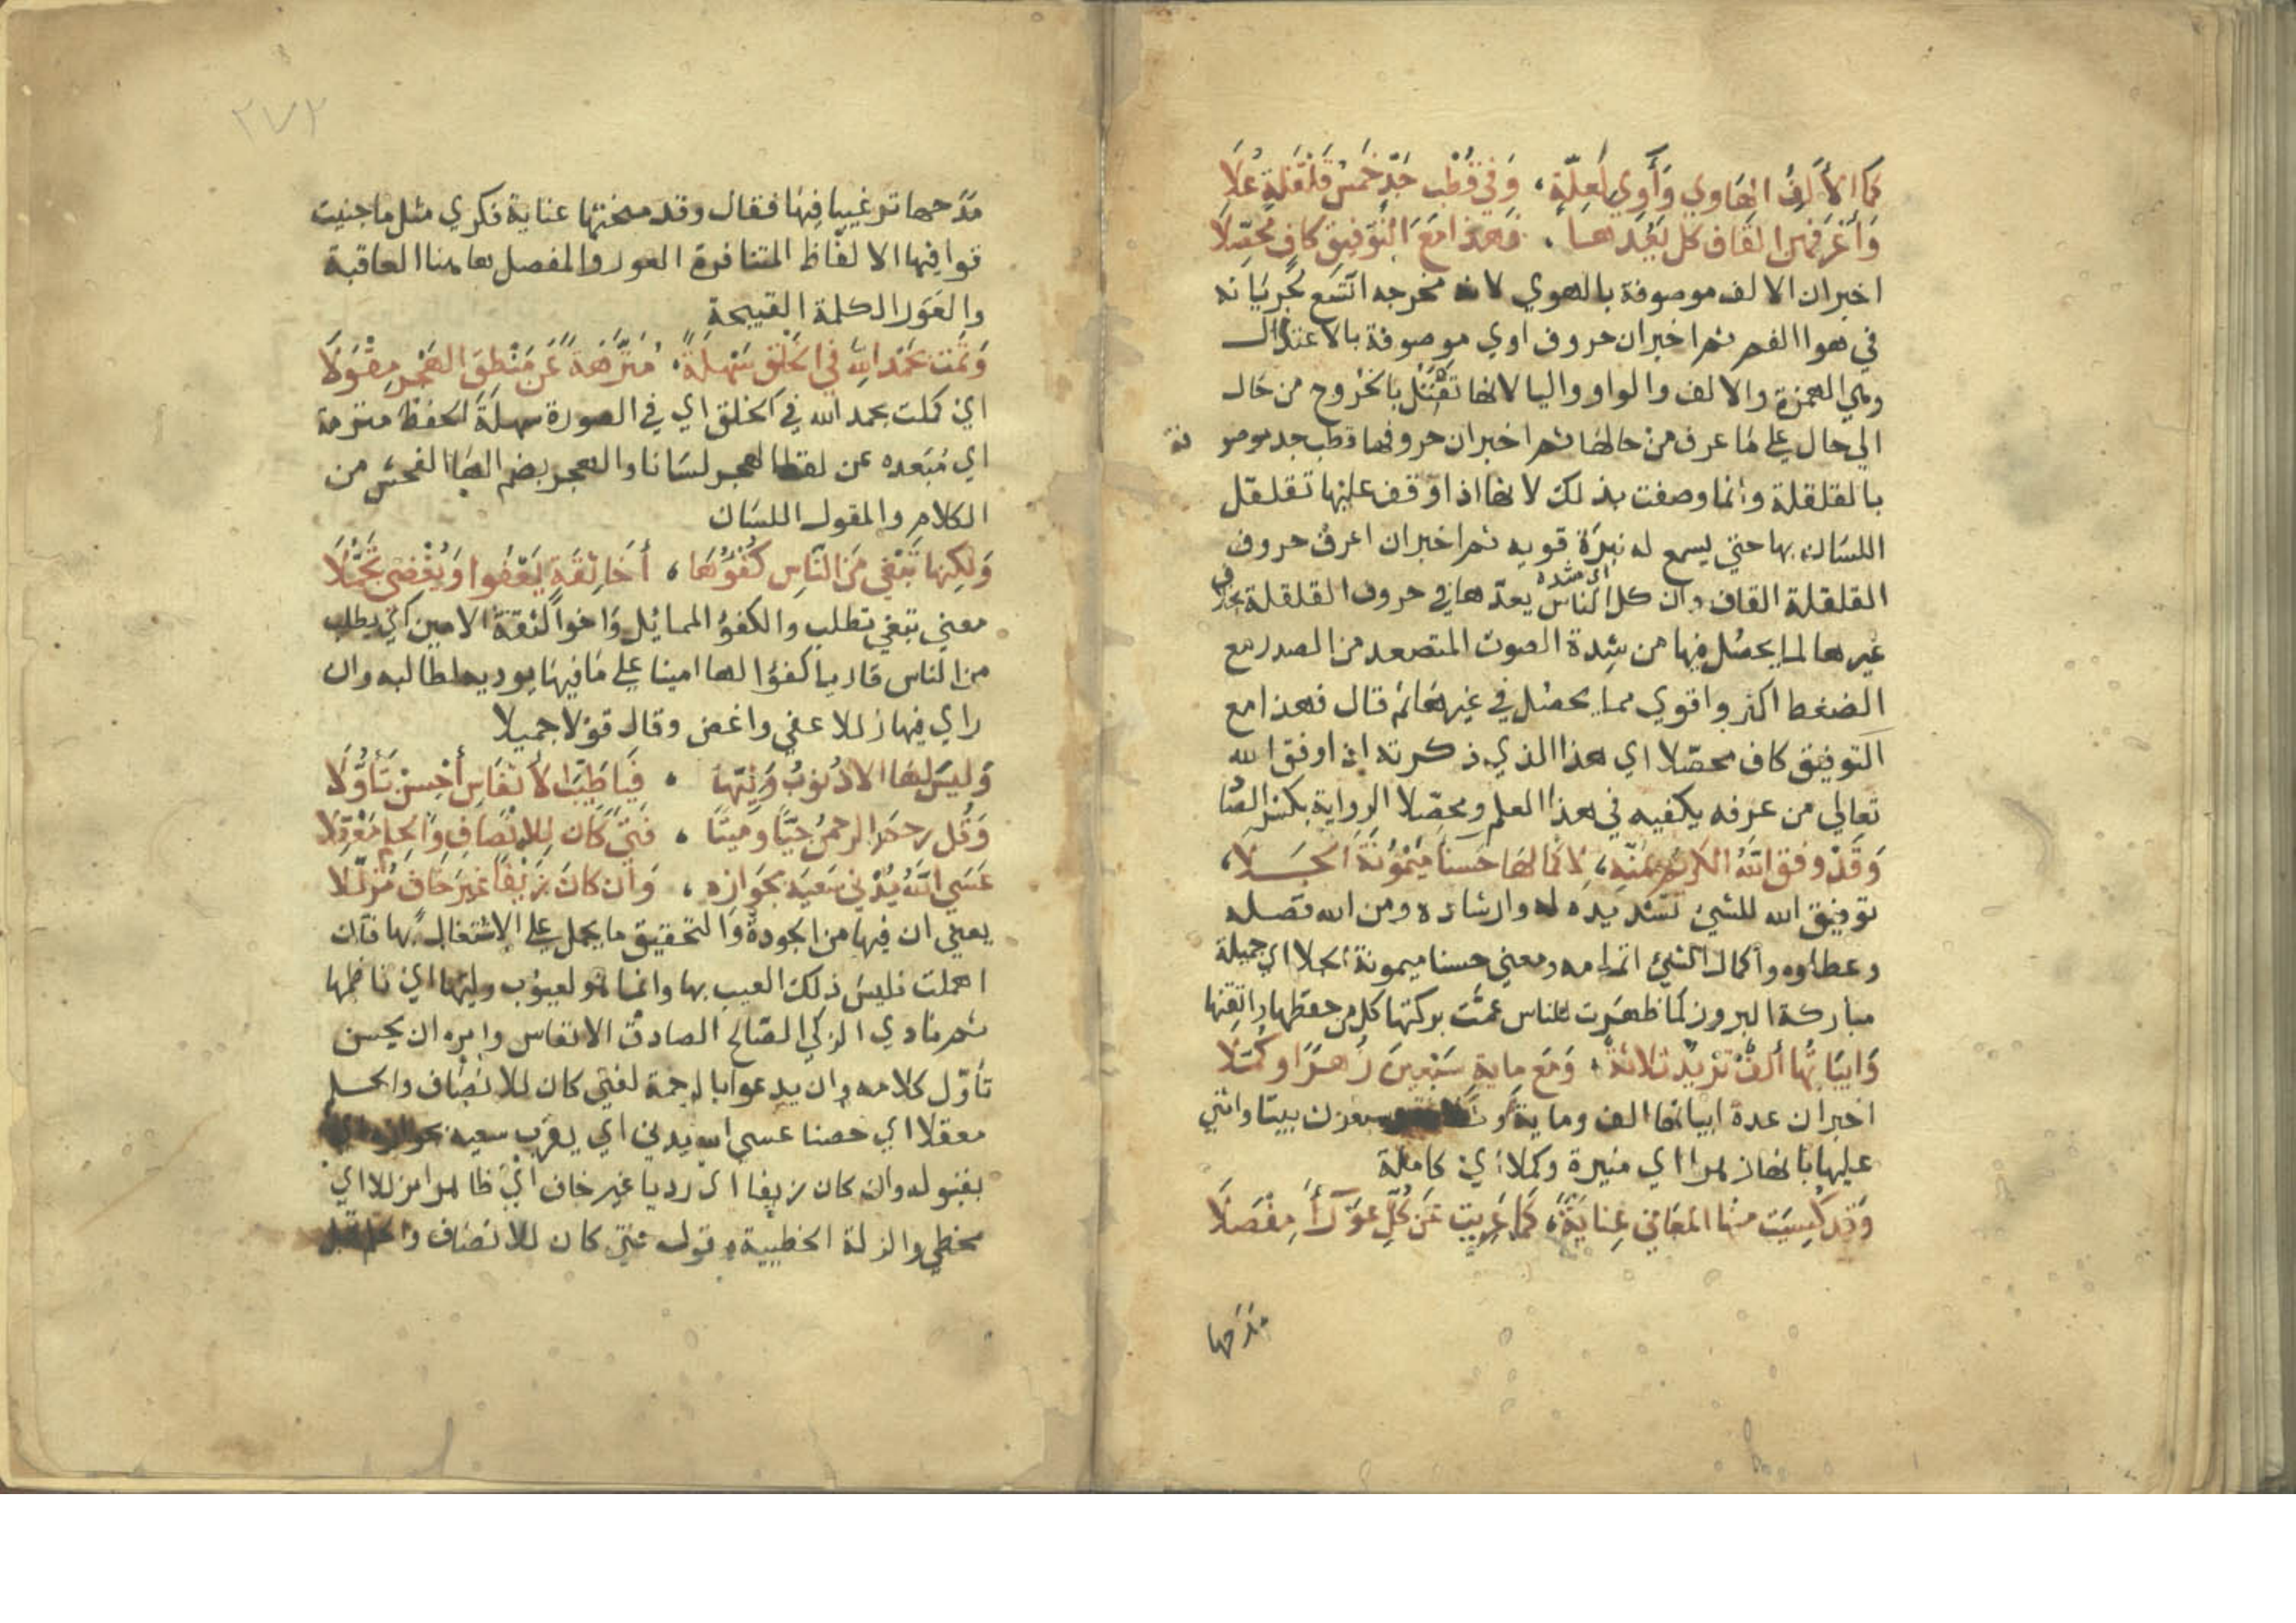 كما الألف الهاوي وأوي لعلة، وفي قطب جد خمس قلقلة علا
وأعرفهن القاف كل يعدها، فهذا مع التوفيق كاف محصلا
اخبر ان الالف موصوفة بالهوي لانه مخرجه اتسع لجريانه
في هوا الفم ثم اخبر ان حروف اوي موصوفة بالاعتلال
وهي الهمزة والالف والواو واليا لانها تعتل بالخروج من حال
الي حال علي ما عرف من حالها ثم اخبر ان حروفها قطب جد موصوفة
بالقلقلة وانما وصفت بذلك لانها اذا وقف عليها تقلقل
اللسان بها حتي يسمع له نبرة قويه ثم اخبر ان اعرف حروف
القلقلة القاف وان كل الناس يعدها في حروف القلقلة بخلاف
غيرها لما يحصل فيها من شدة الصوت المتصعد من الصدر مع
الضغط اكثر واقوي مما يحصل في غيرها ثم قال فهذا مع
التوفيق كاف محصلا اي هذا الذي ذكرته اذا وفق الله
تعالي من عرفه يكفيه في هذا العلم ومحصلا الرواية بكسر الصا
وقد وفق الله الكريم بمنه، لاكمالها حسنا ميمونة الجلا،
توفيق الله للشي تسديده له وارشاده ومن الله فضله
وعطاوه واكمال الشي اتمامه ومعني حسنا ميمونة الجلا اي جميلة
مباركة البروز لما ظهرت للناس عمت بركتها كل من حفظها واتقنها
وابياتها ألف تزيد ثلاثة، ومع ماية سبعين زهرا وكملا
اخبر ان عدة ابياتها الف وماية و وسبعون بيتا واثني
عليها بانها زهرا اي منيرة وكملا اي كاملة
وقد كسيت منها المعاني عناية، كما عريت عن كل عوراء مفصلا
مدحها
٢٧٢
مدحها ترغيبا فيها فقال وقد منحتها عناية فكري مثل ما جنبت
قوافيها الالفاظ المتنافرة العور والمفصل هاهنا العاقبة
والعورا الكلمة القبيحة
وتمت بحمد الله في الخلق سهلة، منزهة عن منطق الهجر مقولا
اي كملت بحمد الله في الخلق اي في الصورة سهلة الحفظ منزهة
اي مبعده عن لفظ الهجر لسانا والهجر بضم الها الفحش من
الكلام والمقول اللسان
ولكنها تبغي من الناس كفؤها، أخا ثقة يعفوا ويغضي تجملا
معني تبغي تطلب والكفؤ المماثل واخوا الثقة الامين اي يطلب
من الناس قاريا كفؤا لها امينا علي ما فيها يوديها لطالبه وان
راي فيها زللا عفي واغض وقال قولا جميلا
وليس لها الا ذنوب وليها، فيا طيب الأنفاس أحسن تأولا
وقل رحم الرحمن حيا وميتا، فتي كان للانصاف والحلم معقلا
عسي الله يدني سعيه بجوازه، وان كان زيفا غير خاف مزللا
يعني ان فيها من الجودة والتحقيق ما يحمل علي الاشتغال بها فان
اهملت فليس ذلك العيب بها وانما هو لعيوب وليها اي ناظمها
ثم نادي الزكي الصالح الصادق الانفاس وامره ان يحسن
تأول كلامه وان يدعوا بالرحمة لفتي كان للانصاف والحلم
معقلا اي حصنا عسي الله يدني اي يقرب سعيه بجوازه اي
بقبوله وان كان زيفا اي رديا غير خاف اي ظاهرا مزللا اي
مخطي والزلة الخطيية وقوله فتي كان للانصاف والحلم